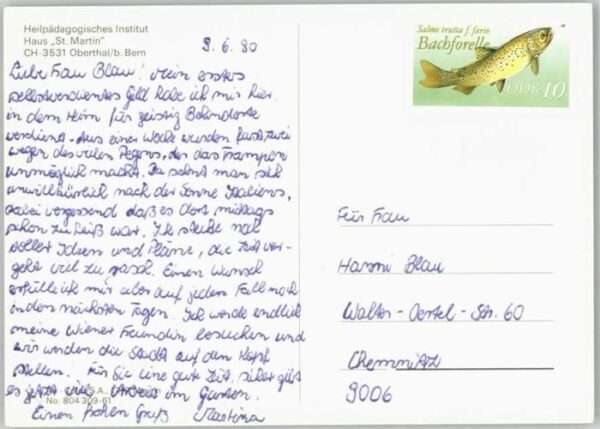 Heilpädagogisches Institut
Haus „St. Martin"
CH-3531 Oberthal/b. Bern
9.6.80
Liebe Frau Blau! Mein erstes
selbstverdientes Geld habe ich mir hier
in dem Heim für geistig Behinderte
verdient. Aus einer Woche wurden fast zwei
wegen des vielen Regens, der das Trampen
unmöglich macht. Da sehnt man sich
unwillkürlich nach der Sonne Italiens,
dabei vergessend daß es dort mittags
schon zu heiß war. Ich stecke noch
voller Ideen und Pläne, die Zeit ver-
geht viel zu rasch. Einen Wunsch
erfülle ich mir aber auf jeden Fall noch
in den nächsten Tagen. Ich werde endlich
meine Wiener Freundin besuchen und
wir werden die Stadt auf den Kopf
stellen. Für Sie eine gute Zeit, sicher gibt
es jetzt viel Arbeit im Garten.
No. 804 309-61
Einen frohen Gruß Martina
Salmo trutta f. fario
Bachforelle
DDR 10
Für Frau
Hanni Blau
Walter-Oertel-Str. 60
Chemnitz
9006